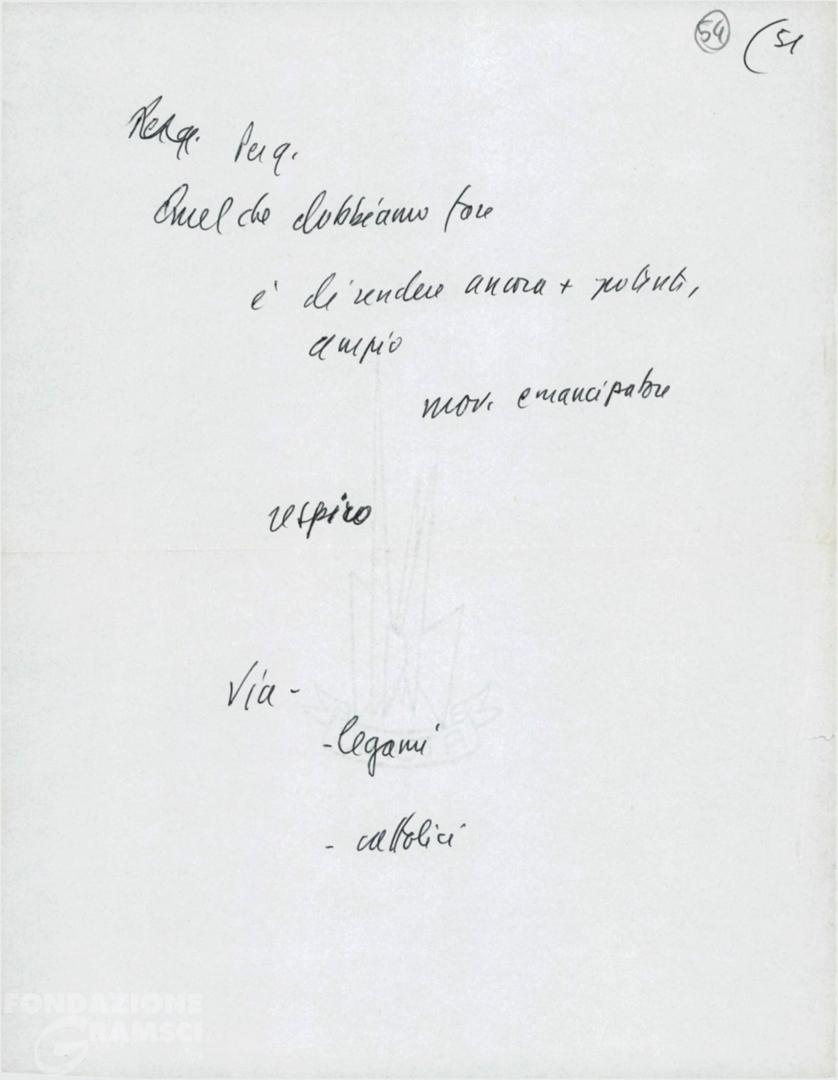 54 (51
Perq.
Quel che dobbiamo fare
è di rendere ancora + potenti,
ampio
mov. emancipatore
respiro
Via -
- legami
- cattolici
FONDAZIONE
GRAMSCI